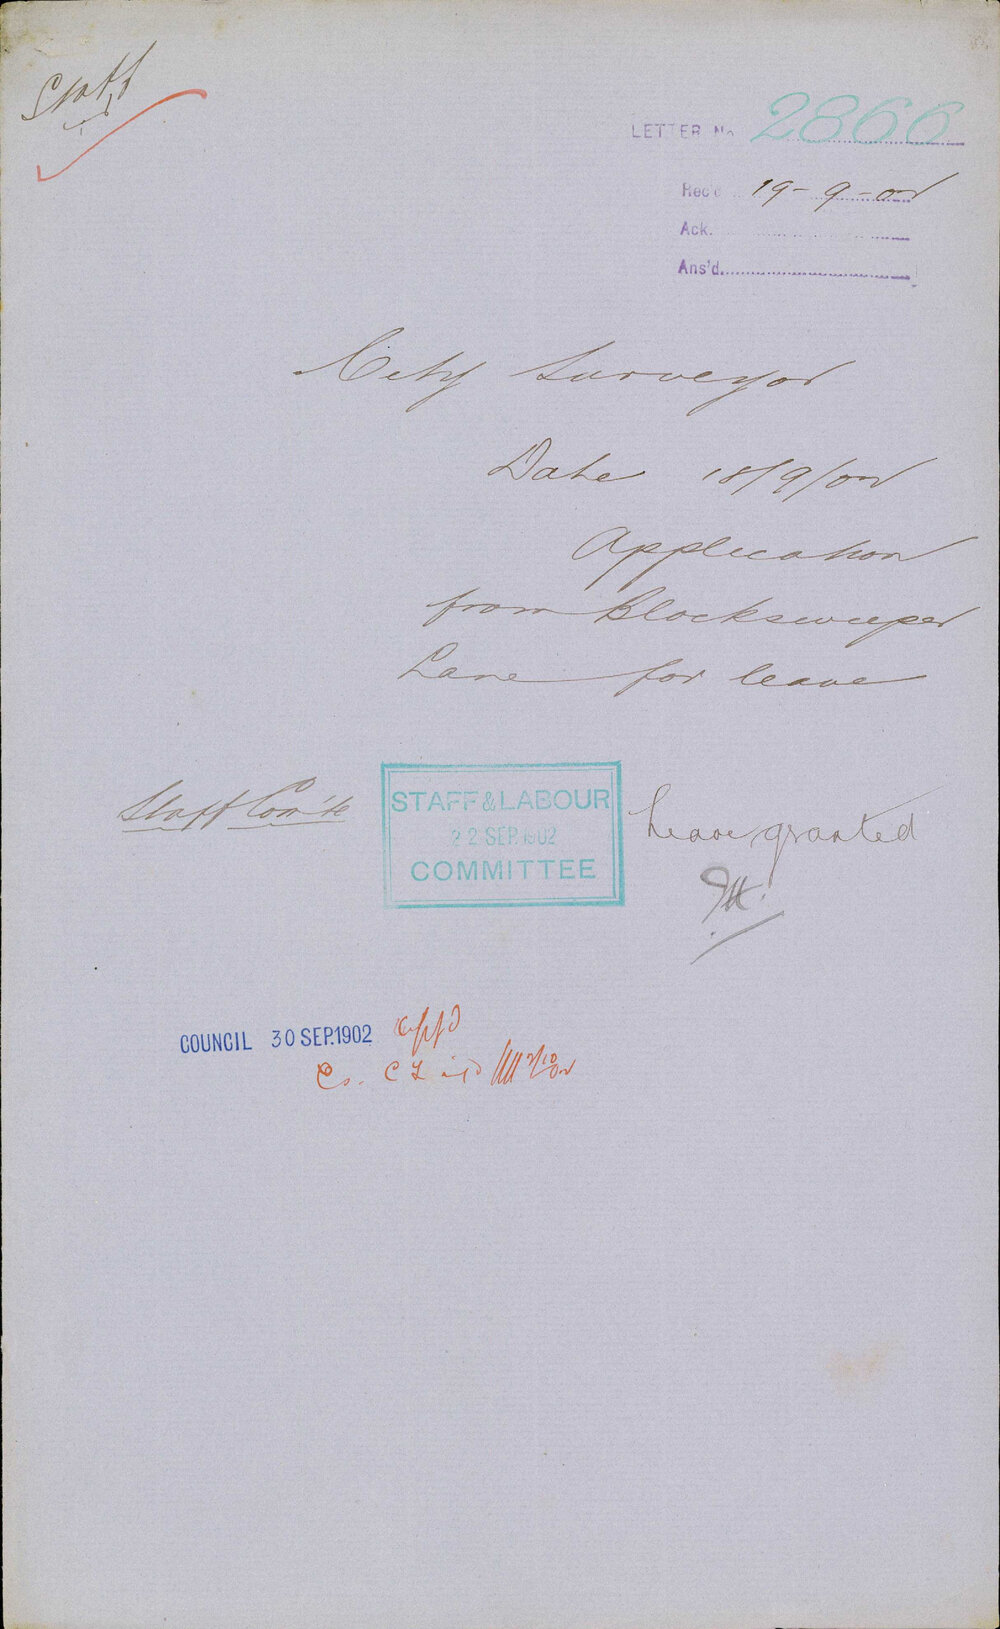 Staff
LETTER No 2866
Rec'd 19-9-02
Ack.
Ans'd.
City Surveyor
Date 18/9/02
Application
from Blocksweeper
Lane for leave
Staff Com'te
STAFF & LABOUR
22 SEP. 1902
COMMITTEE
Leave granted
COUNCIL 30 SEP. 1902 app'd
2/10/02